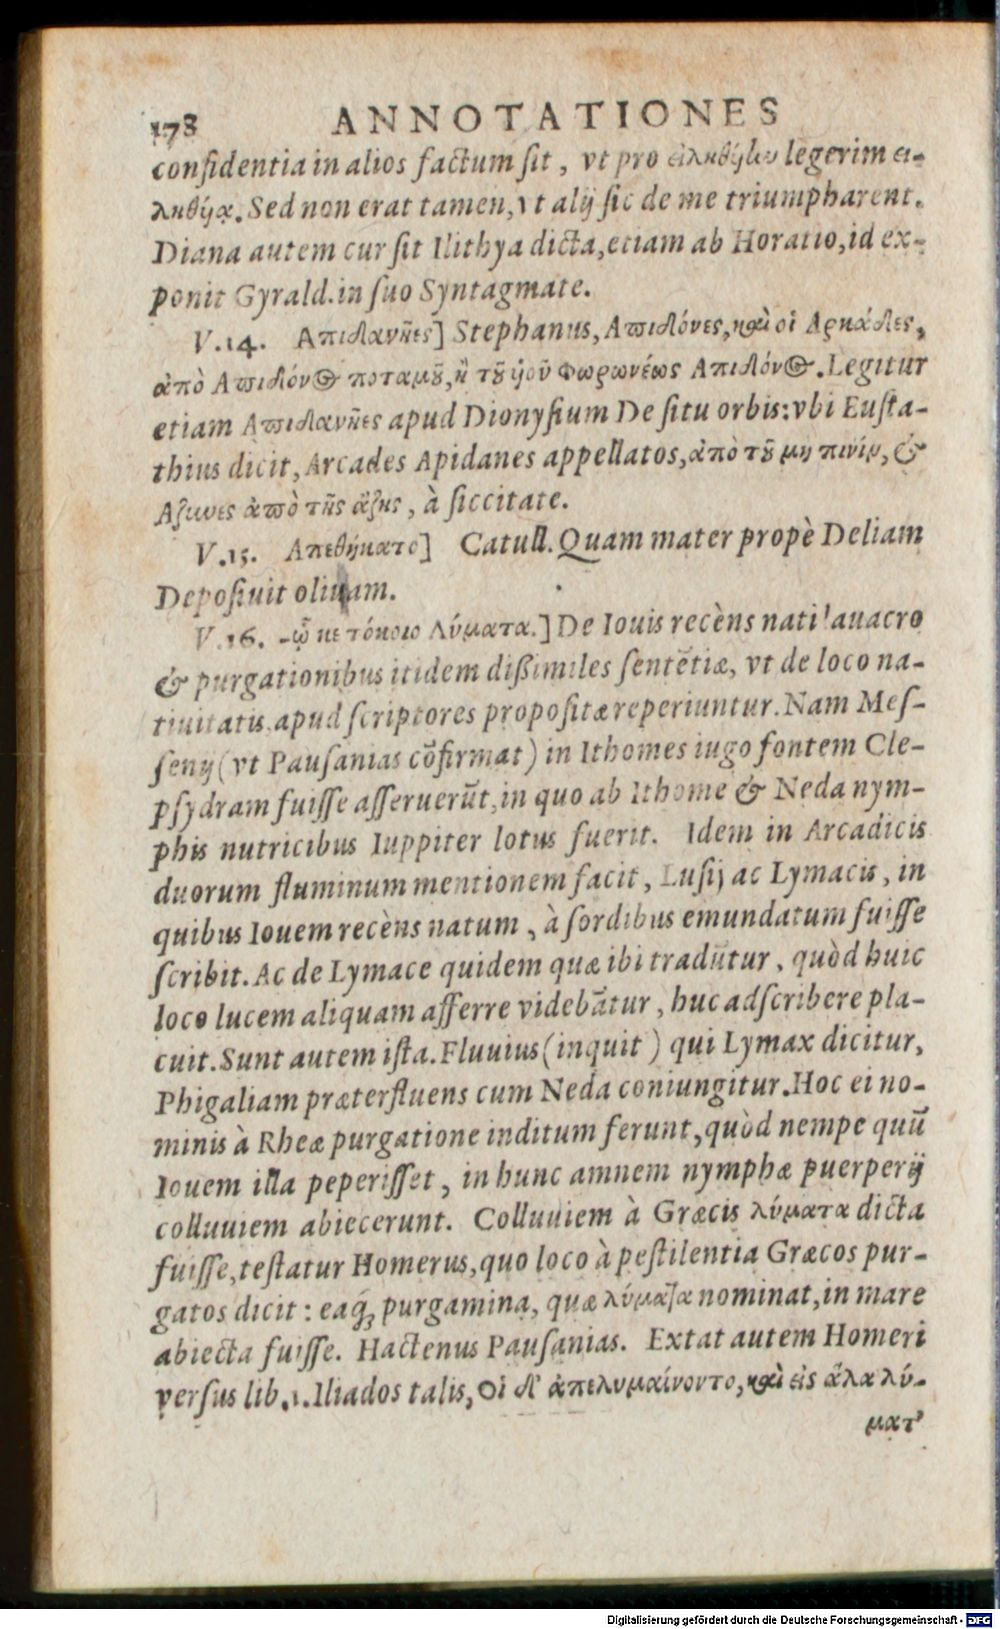 178 ANNOTATIONES
confidentia in alios factum sit, vt pro εἰληθήϊω legerim ει-
ληθήϊα. Sed non erat tamen, vt alij sic de me triumpharent.
Diana autem cur sit Ilithya dicta, etiam ab Horatio, id ex-
ponit Gyrald. in suo Syntagmate.
V.14. Απιδανῆες] Stephanus, Απιδόνες, καὶ οἱ Αρκάδες,
ἀπὸ Απιδόνος ποταμοῦ, ἢ τοῦ ὑιοῦ Φωρωνέως Απιδόνος. Legitur
etiam Απιδανῆες apud Dionysium De situ orbis: vbi Eusta-
thius dicit, Arcades Apidanes appellatos, ἀπὸ τοῦ μὴ πινεῖν, &
Αζωνες ἀπὸ τῆς ἄζης, à siccitate.
V.15. Απεθήκατο] Catull. Quam mater propè Deliam
Deposiuit oliuam.
V.16. -ᾧ κε τόκοιο Λύματα.] De Iouis recèns nati lauacro
& purgationibus itidem dißimiles sentẽtiæ, vt de loco na-
tiuitatis apud scriptores propositæ reperiuntur. Nam Mes-
senij (vt Pausanias cõfirmat) in Ithomes iugo fontem Cle-
psydram fuisse asseruerũt, in quo ab Ithome & Neda nym-
phis nutricibus Iuppiter lotus fuerit. Idem in Arcadicis
duorum fluminum mentionem facit, Lusij ac Lymacis, in
quibus Iouem recèns natum, à sordibus emundatum fuisse
scribit. Ac de Lymace quidem quæ ibi tradũtur, quòd huic
loco lucem aliquam afferre videbãtur, huc adscribere pla-
cuit. Sunt autem ista. Fluuius (inquit) qui Lymax dicitur,
Phigaliam præterfluens cum Neda coniungitur. Hoc ei no-
minis à Rheæ purgatione inditum ferunt, quòd nempe quũ
Iouem illa peperisset, in hunc amnem nymphæ puerperij
colluuiem abiecerunt. Colluuiem à Græcis λύματα dicta
fuisse, testatur Homerus, quo loco à pestilentia Græcos pur-
gatos dicit: eaq́ꝫ purgamina, quæ λύματα nominat, in mare
abiecta fuisse. Hactenus Pausanias. Extat autem Homeri
versus lib. 1. Iliados talis, Οἱ δ' ἀπελυμαίνοντο, καὶ εἰς ἅλα λύ-
ματ'
Digitalisierung gefördert durch die Deutsche Forschungsgemeinschaft - DFG